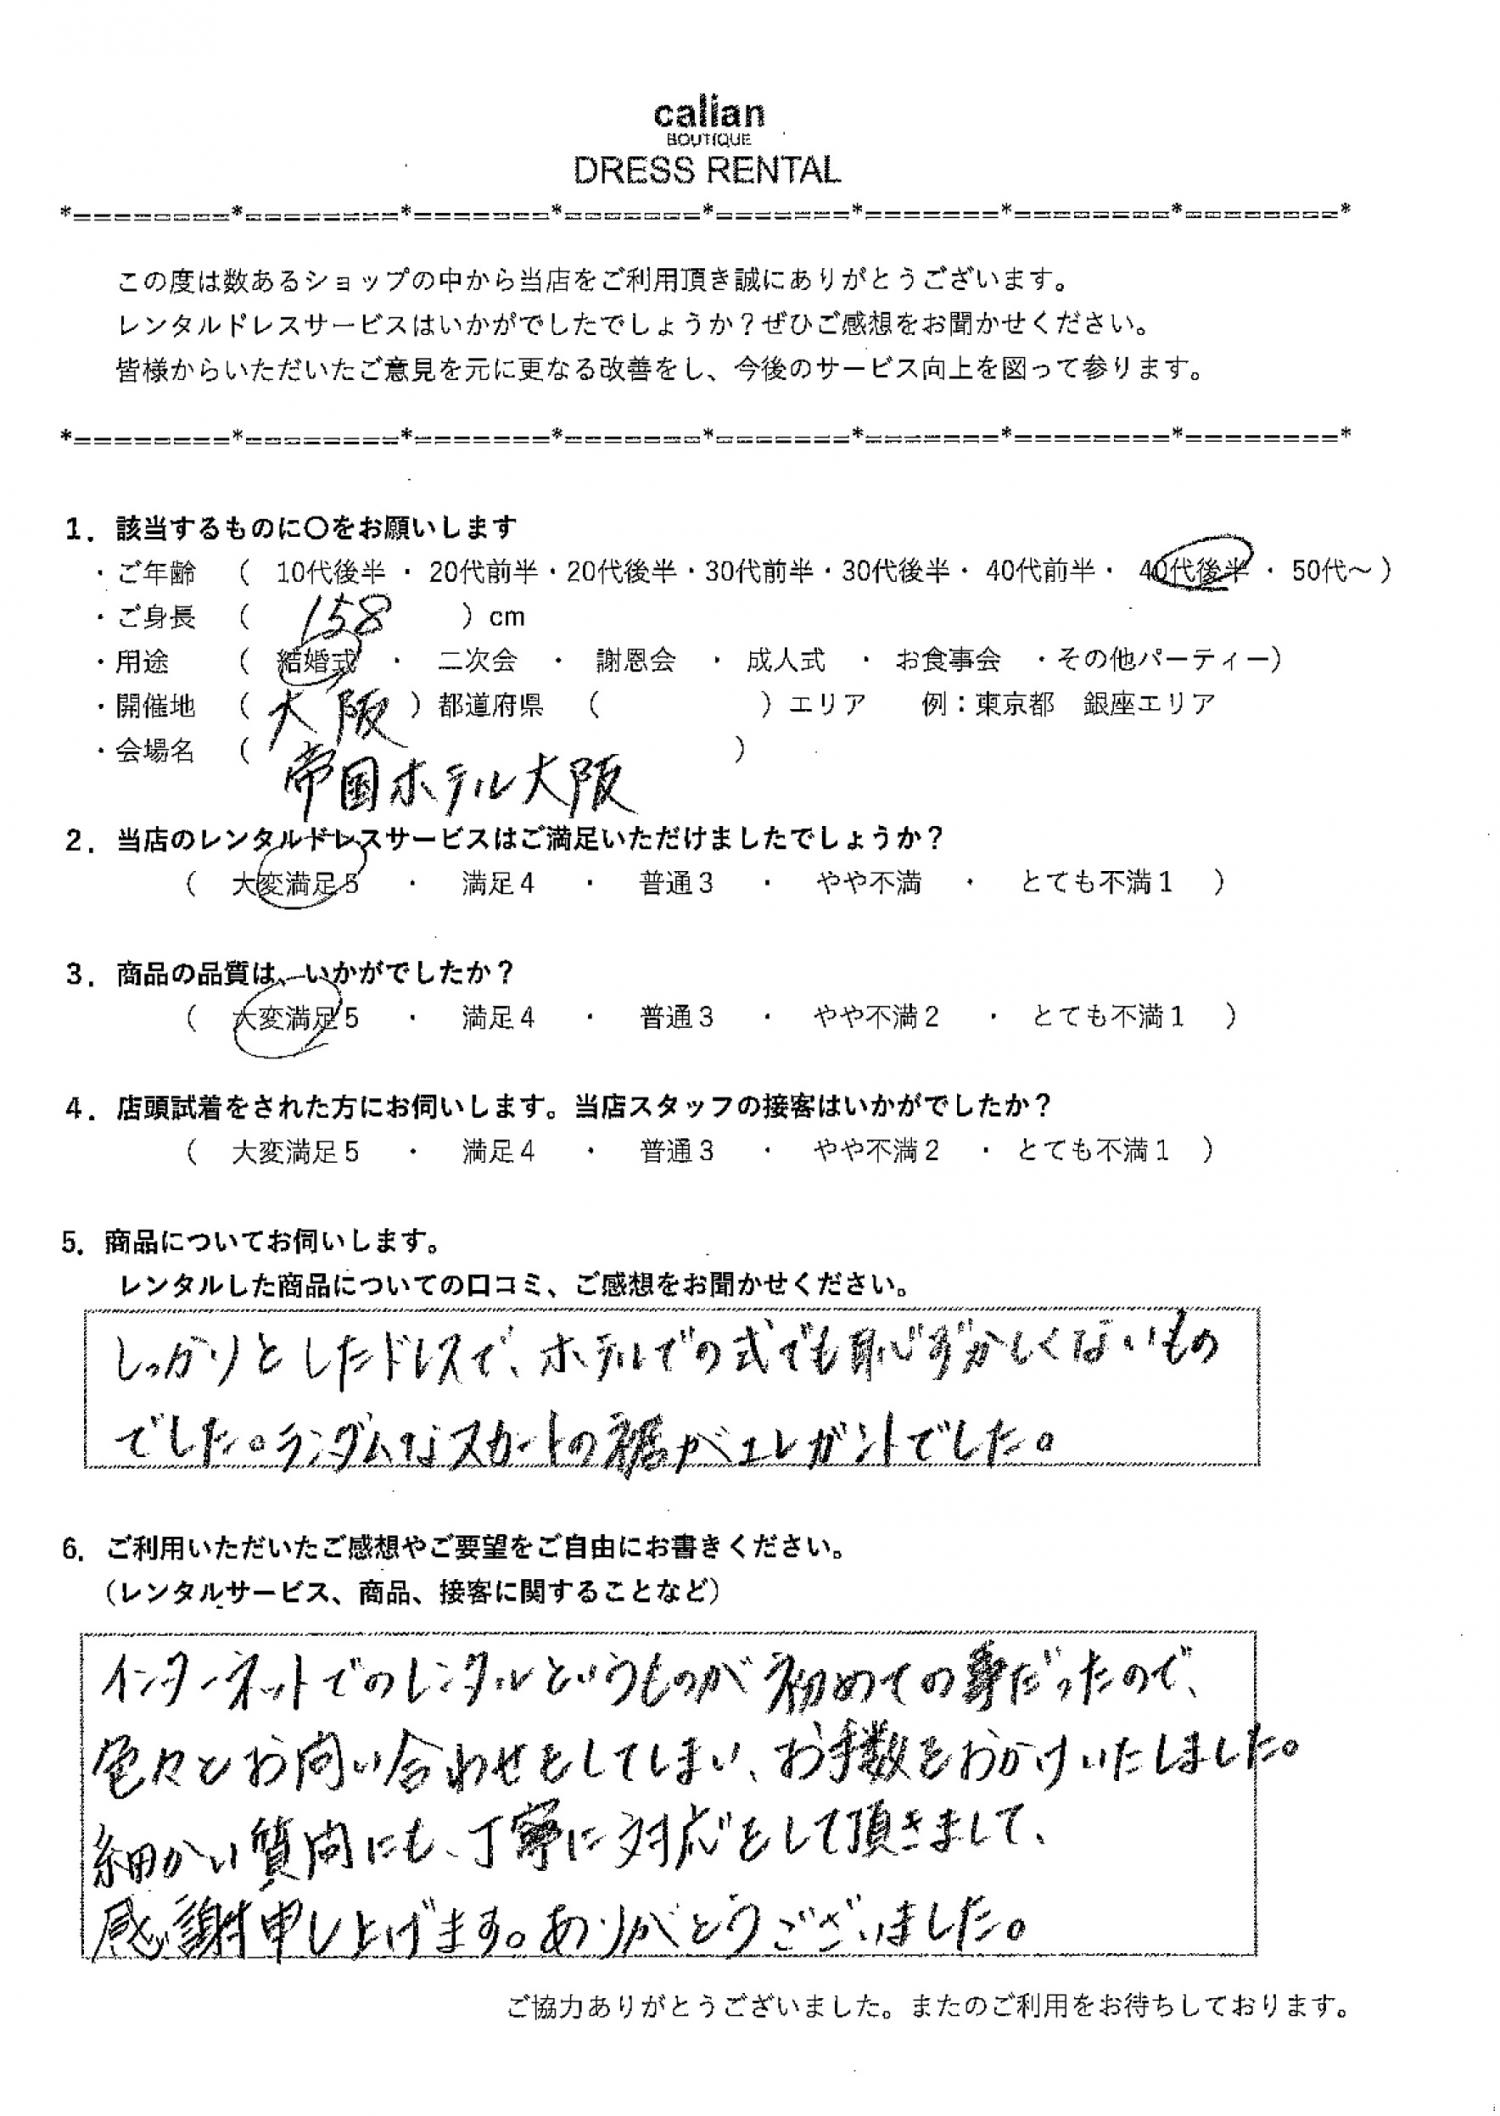 calian
BOUTIQUE
DRESS RENTAL
*========*========*=======*=======*=======*=======*========*========*
この度は数あるショップの中から当店をご利用頂き誠にありがとうございます。
レンタルドレスサービスはいかがでしたでしょうか？ぜひご感想をお聞かせください。
皆様からいただいたご意見を元に更なる改善をし、今後のサービス向上を図って参ります。
*========*========*=======*=======*=======*=======*========*========*
1．該当するものに〇をお願いします
・ご年齢　（　10代後半 ・ 20代前半・20代後半・30代前半・30代後半・ 40代前半・ 40代後半 ・ 50代～）
・ご身長　（　158　）cm
・用途　（　結婚式　・　二次会　・　謝恩会　・　成人式　・　お食事会　・その他パーティー）
・開催地　（　大阪　）都道府県　（　　　）エリア　例：東京都　銀座エリア
・会場名　（　帝国ホテル大阪　）
2．当店のレンタルドレスサービスはご満足いただけましたでしょうか？
（　大変満足５　・　満足４　・　普通３　・　やや不満　・　とても不満１　）
3．商品の品質は、いかがでしたか？
（　大変満足５　・　満足４　・　普通３　・　やや不満２　・　とても不満１　）
4．店頭試着をされた方にお伺いします。当店スタッフの接客はいかがでしたか？
（　大変満足５　・　満足４　・　普通３　・　やや不満２　・　とても不満１　）
5．商品についてお伺いします。
レンタルした商品についての口コミ、ご感想をお聞かせください。
しっかりとしたドレスで、ホテルでの式でも恥ずかしくないもの
でした。ランダムなスカートの裾がエレガントでした。
6．ご利用いただいたご感想やご要望をご自由にお書きください。
（レンタルサービス、商品、接客に関することなど）
インターネットでのレンタルというものが初めての事だったので、
色々とお問い合わせをしてしまい、お手数をおかけいたしました。
細かい質問にも、丁寧に対応をして頂きまして、
感謝申し上げます。ありがとうございました。
ご協力ありがとうございました。またのご利用をお待ちしております。